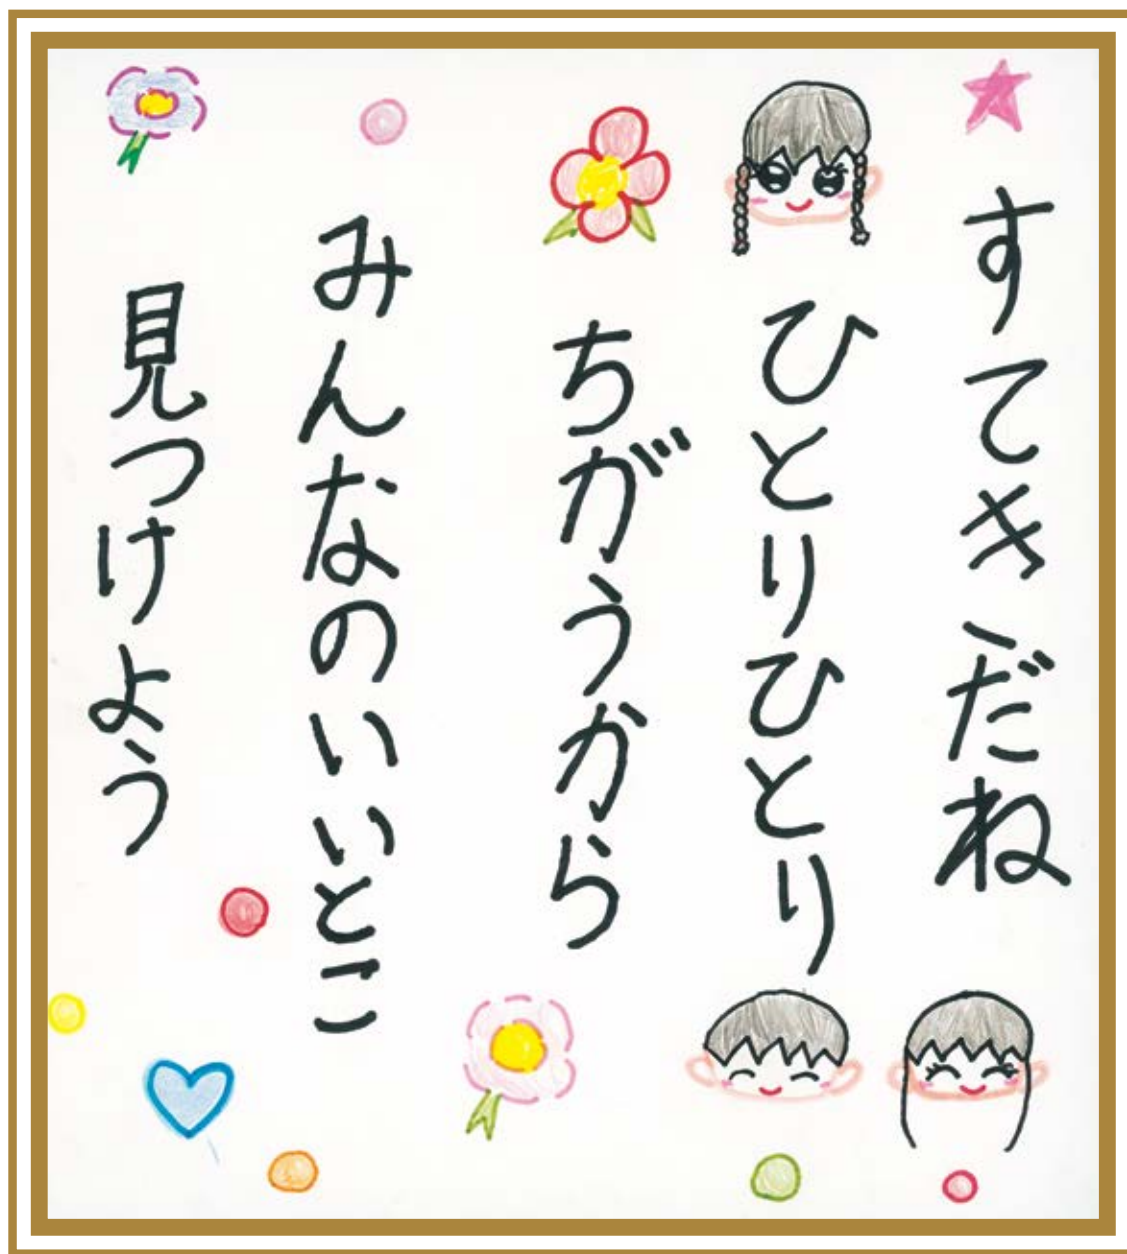 すてきだね
ひとりひとり
ちがうから
みんなのいいとこ
見つけよう